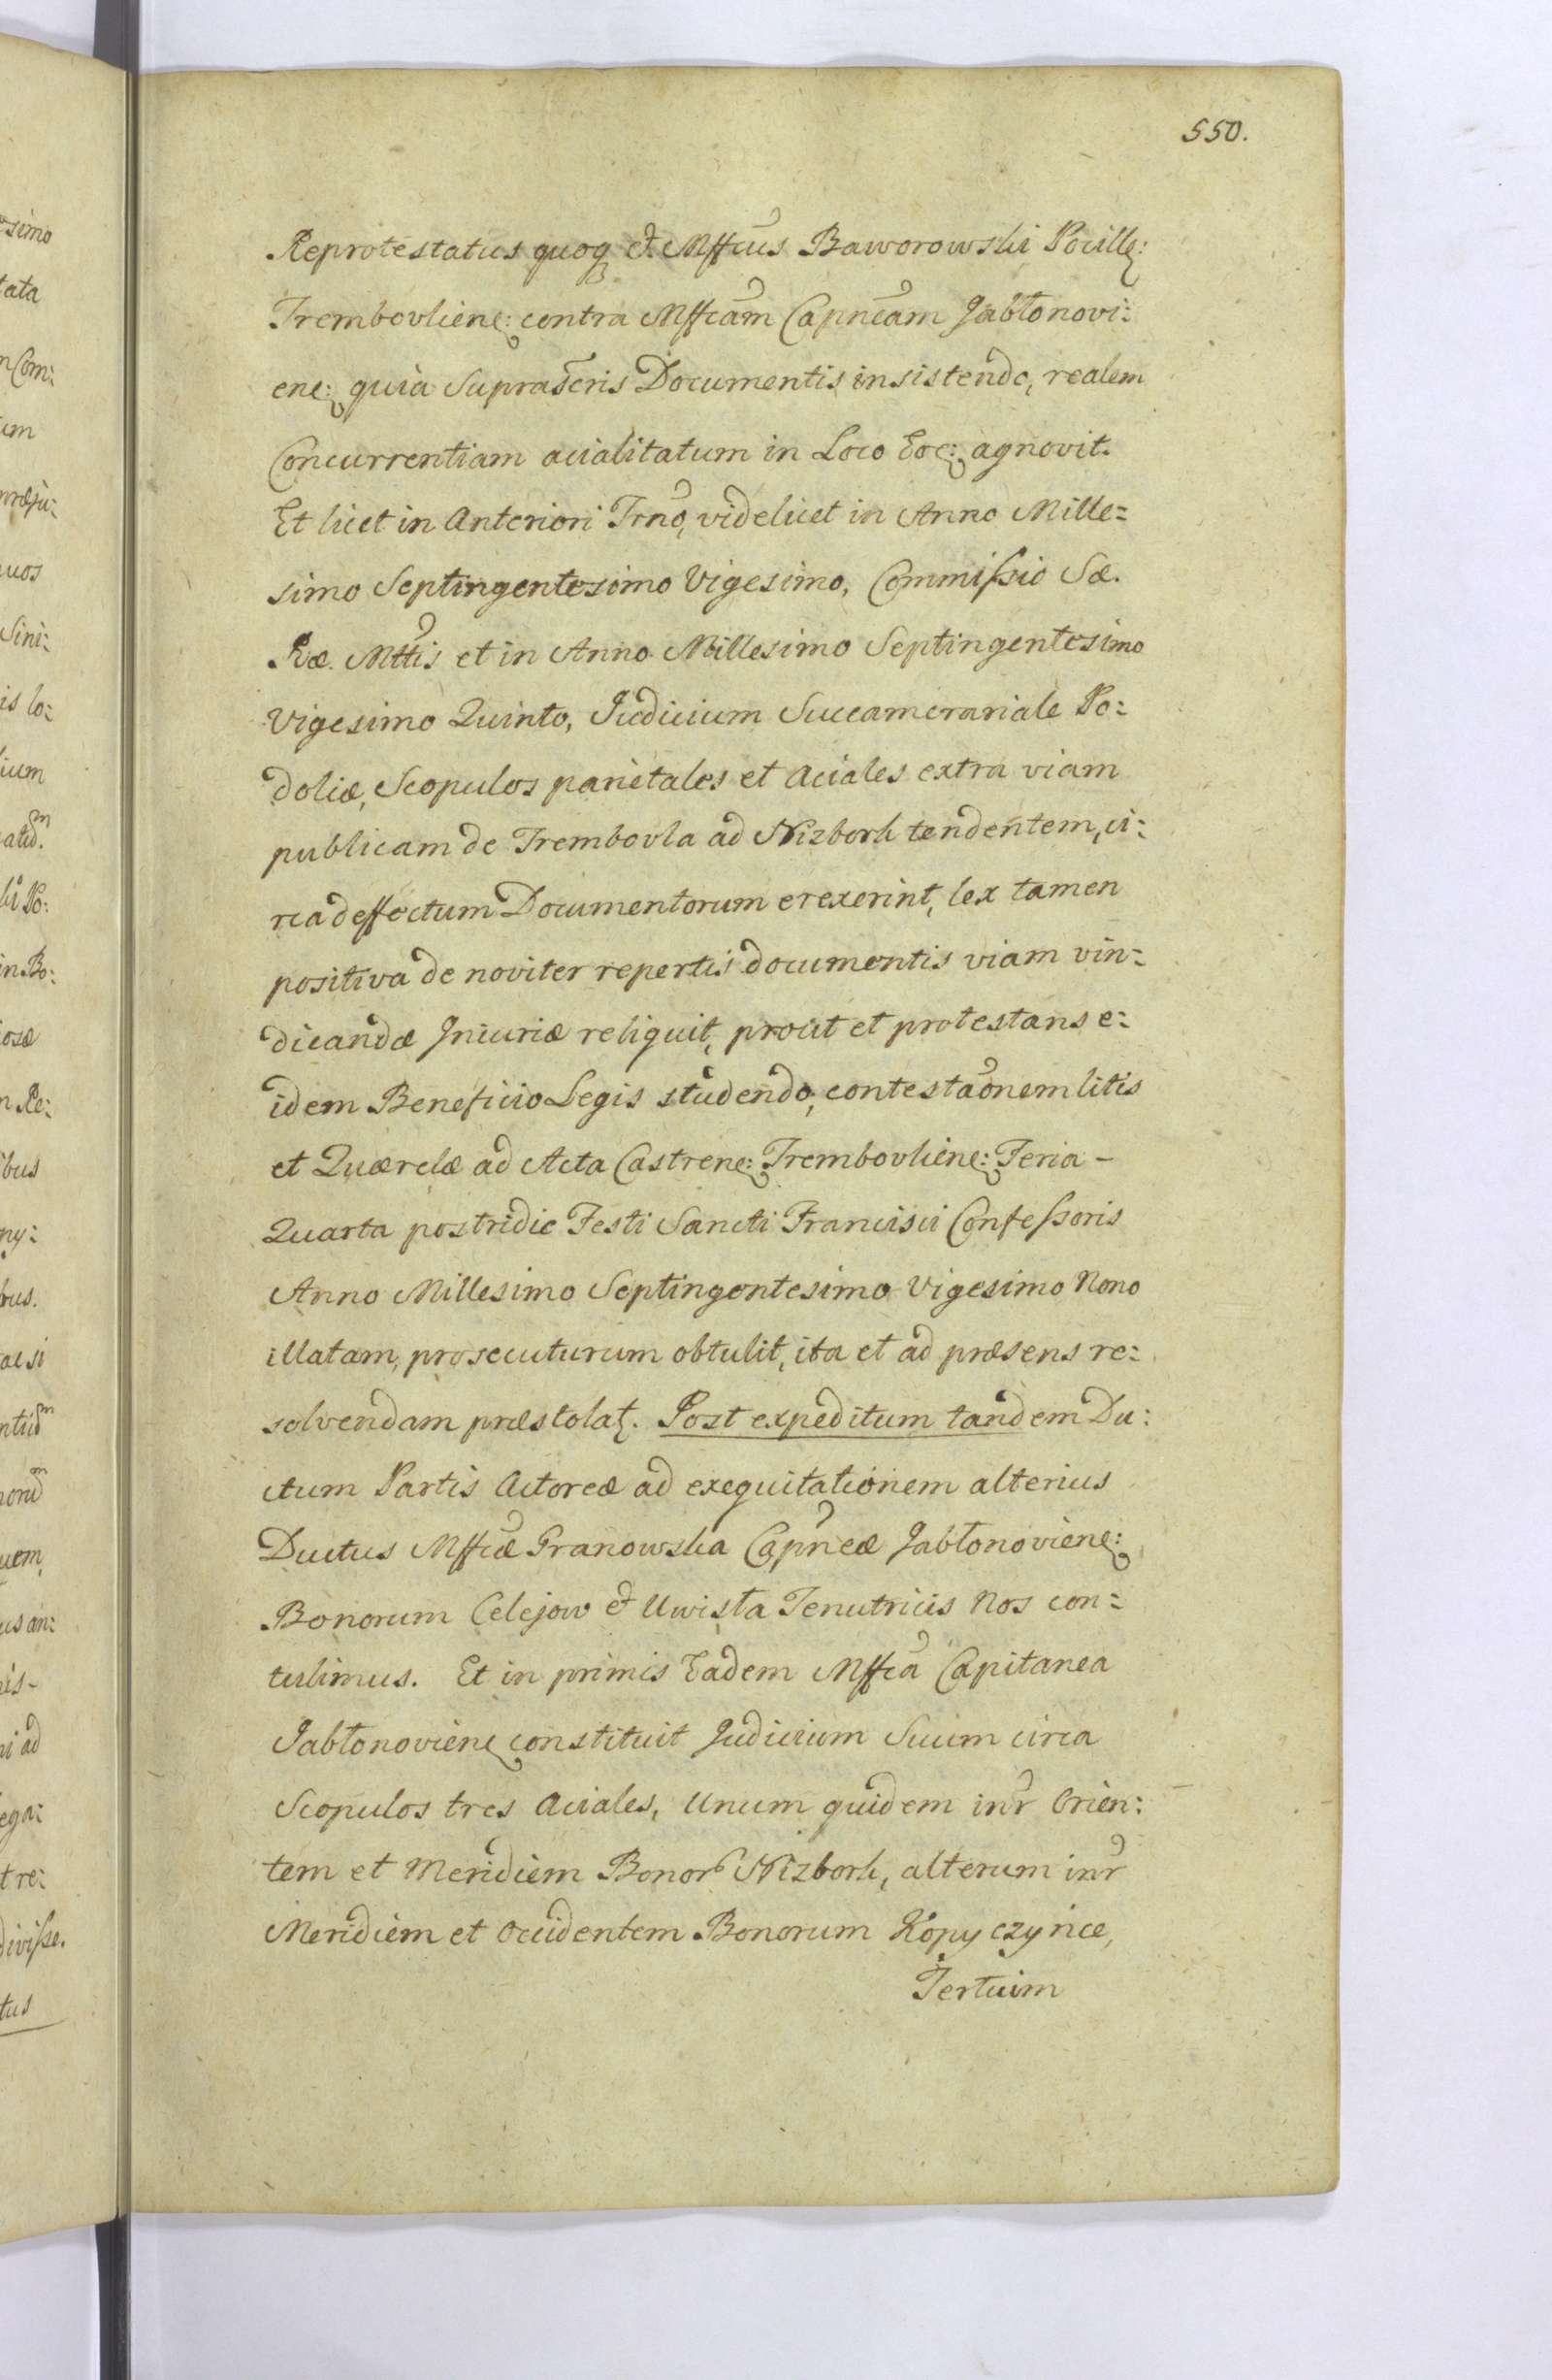 550.
Reprotestatus quoq et Mffcus Baworowski Pocille:
Trembovliene: contra Mffcam Capneam Jabłonovi:
ene: quia Suprascris Documentis insistendo, realem
Concurrentiam acialitatum in Loco Eoe: agnovit.
Et licet in Anteriori Trno, videlicet in Anno Mille:
simo Septingentesimo Vigesimo, Commissio Sæ.
Ræ. Mttis et in Anno Millesimo Septingentesimo
Vigesimo Quinto, Judicium Succamerariale Po:
doliæ, Scopulos parietales et Aciales extra viam
publicam de Trembovla ad Nizbork tendentem, ci:
rca deffectum Documentorum erexerint, lex tamen
positiva de noviter repertis documentis viam vin:
dicandæ Injuriæ reliquit, prout et protestans e:
idem Beneficio Legis studendo, contestaonem litis
et Quærelæ ad Acta Castrene: Trembovliene: Feria -
Quarta postridie Festi Sancti Francisci Confessoris
Anno Millesimo Septingentesimo Vigesimo Nono
illatam, prosecuturum obtulit, ita et ad præsens re:
solvendam præstolat. Post expeditum tandem Du:
ctum Partis Actoreæ ad exequitationem alterius
Ductus Mffcæ Granowska Capneæ Jabłonoviene:
Bonorum Celejow et Uwisła Tenutricis Nos con:
tulimus. Et in primis Eadem Mffca Capitanea
Jabłonoviene constituit Judicium Suum circa
Scopulos tres Aciales, Unum quidem intr Orien:
tem et Meridiem Bonor Nizbork, alterum intr
Meridiem et Occidentem Bonorum Kopyczyńce,
Tertium
simo
tata
Com:
um
uos
Sini:
is lo:
ium
Po:
in Bo:
osæ
Re:
ibus
ny:
rus.
uem,
us an:
is -
ni ad
ega:
t re:
divisse.
tus